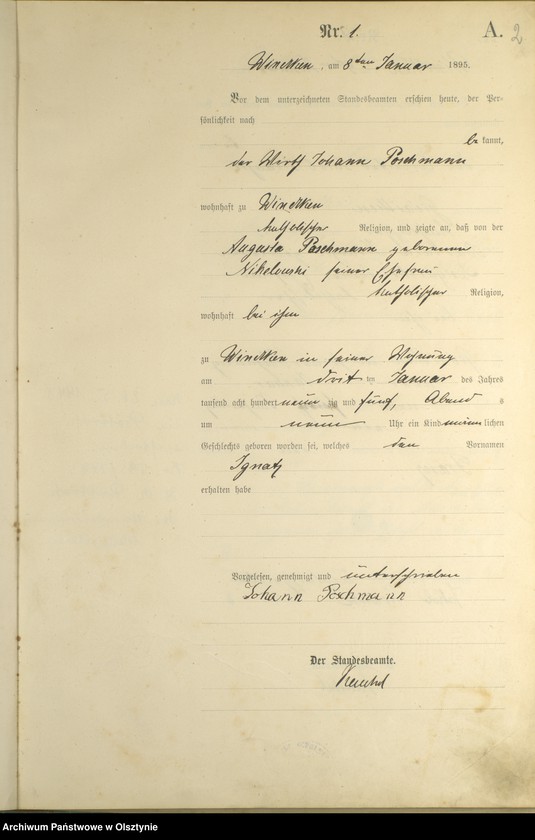 Nr. 1. A. 2
am 8ten Januar 1895.
Vor dem unterzeichneten Standesbeamten erschien heute, der Per-
sönlichkeit nach
be kannt,
der Wirth Johann Poschmann
wohnhaft zu
katholischer Religion, und zeigte an, daß von der
Augusta Poschmann geborenen
seiner Ehefrau
katholischer Religion,
wohnhaft bei ihm
zu in seiner Wohnung
am dritten Januar des Jahres
tausend acht hundert neun zig und fünf, Abend s
um neun Uhr ein Kind männlichen
Geschlechts geboren worden sei, welches den Vornamen
Ignatz
erhalten habe
Vorgelesen, genehmigt und unterschrieben
Johann Poschmann
Der Standesbeamte.
Archiwum Państwowe w Olsztynie